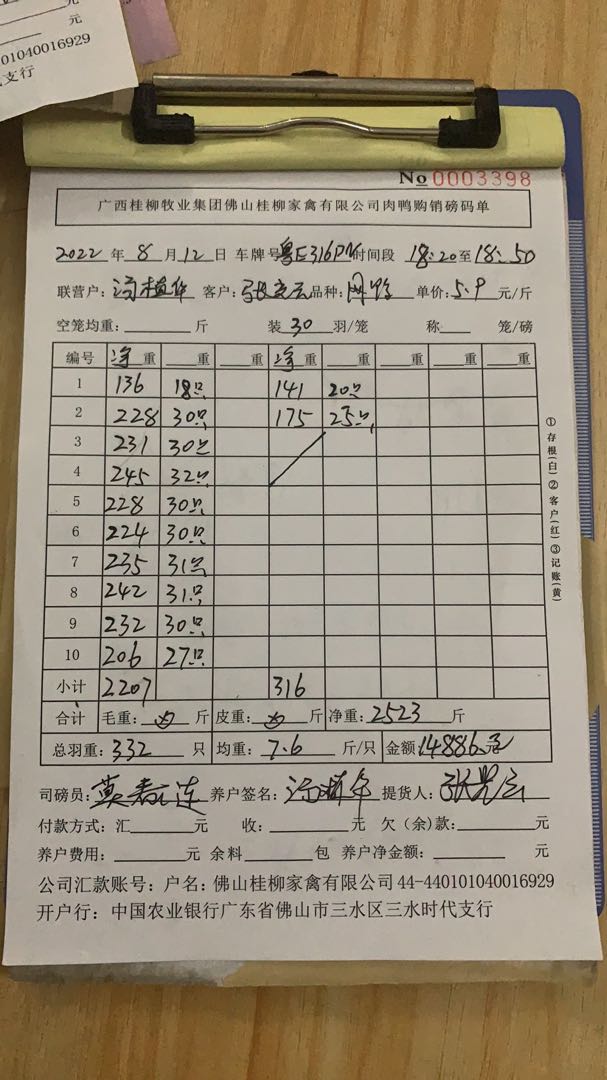 元
01040016929
支行
No 0003398
广西桂柳牧业集团佛山桂柳家禽有限公司肉鸭购销磅码单
2022 年 8 月 12 日 车牌号 粤E316DN 时间段 18:20 至 18:50
联营户: 客户: 品种: 单价: 5.9 元/斤
空笼均重: 斤 装 30 羽/笼 称 笼/磅
编号 净重 重 重 净重 重 重 重 重
1 136 18只 141 20只
2 228 30只 175 25只
3 231 30只
4 245 32只
5 228 30只
6 224 30只
7 235 31只
8 242 31只
9 232 30只
10 206 27只
小计 2207 316
合计 毛重: 斤 皮重: 斤 净重: 2523 斤
总羽重: 332 只 均重: 7.6 斤/只 金额: 14886元
司磅员: 养户签名: 提货人:
付款方式: 汇 元 收: 元 欠(余)款: 元
养户费用: 元 余料 包 养户净金额: 元
公司汇款账号: 户名: 佛山桂柳家禽有限公司 44-440101040016929
开户行: 中国农业银行广东省佛山市三水区三水时代支行
①存根(白)②客户(红)③记账(黄)